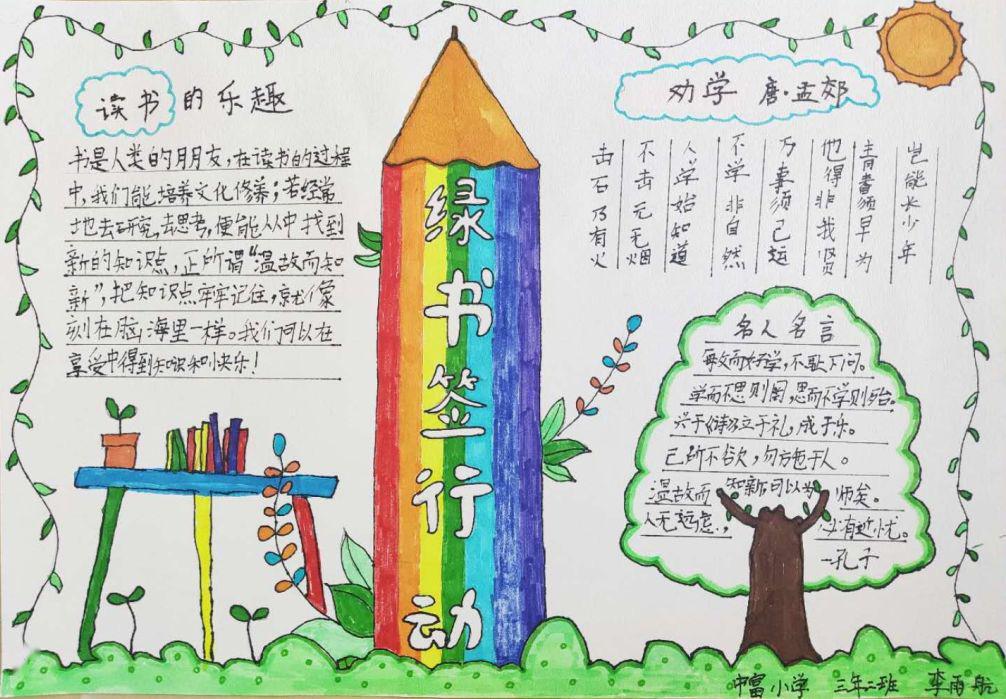 读书的乐趣
书是人类的朋友，在读书的过程
中，我们能培养文化修养；若经常
地去研究，去思考，便能从中找到
新的知识点，正所谓“温故而知
新”，把知识点牢牢记住，就像
刻在脑海里一样。我们可以在
享受中得到知识和快乐！
绿书签行动
劝学 唐·孟郊
击石乃有火
不击元无烟
人学始知道
不学非自然
万事须己运
他得非我贤
青春须早为
岂能长少年
名人名言
敏而好学，不耻下问。
学而不思则罔，思而不学则殆。
兴于诗，立于礼，成于乐。
己所不欲，勿施于人。
温故而知新可以为师矣。
人无远虑，必有近忧。
—孔子
中富小学 三年二班 李雨航